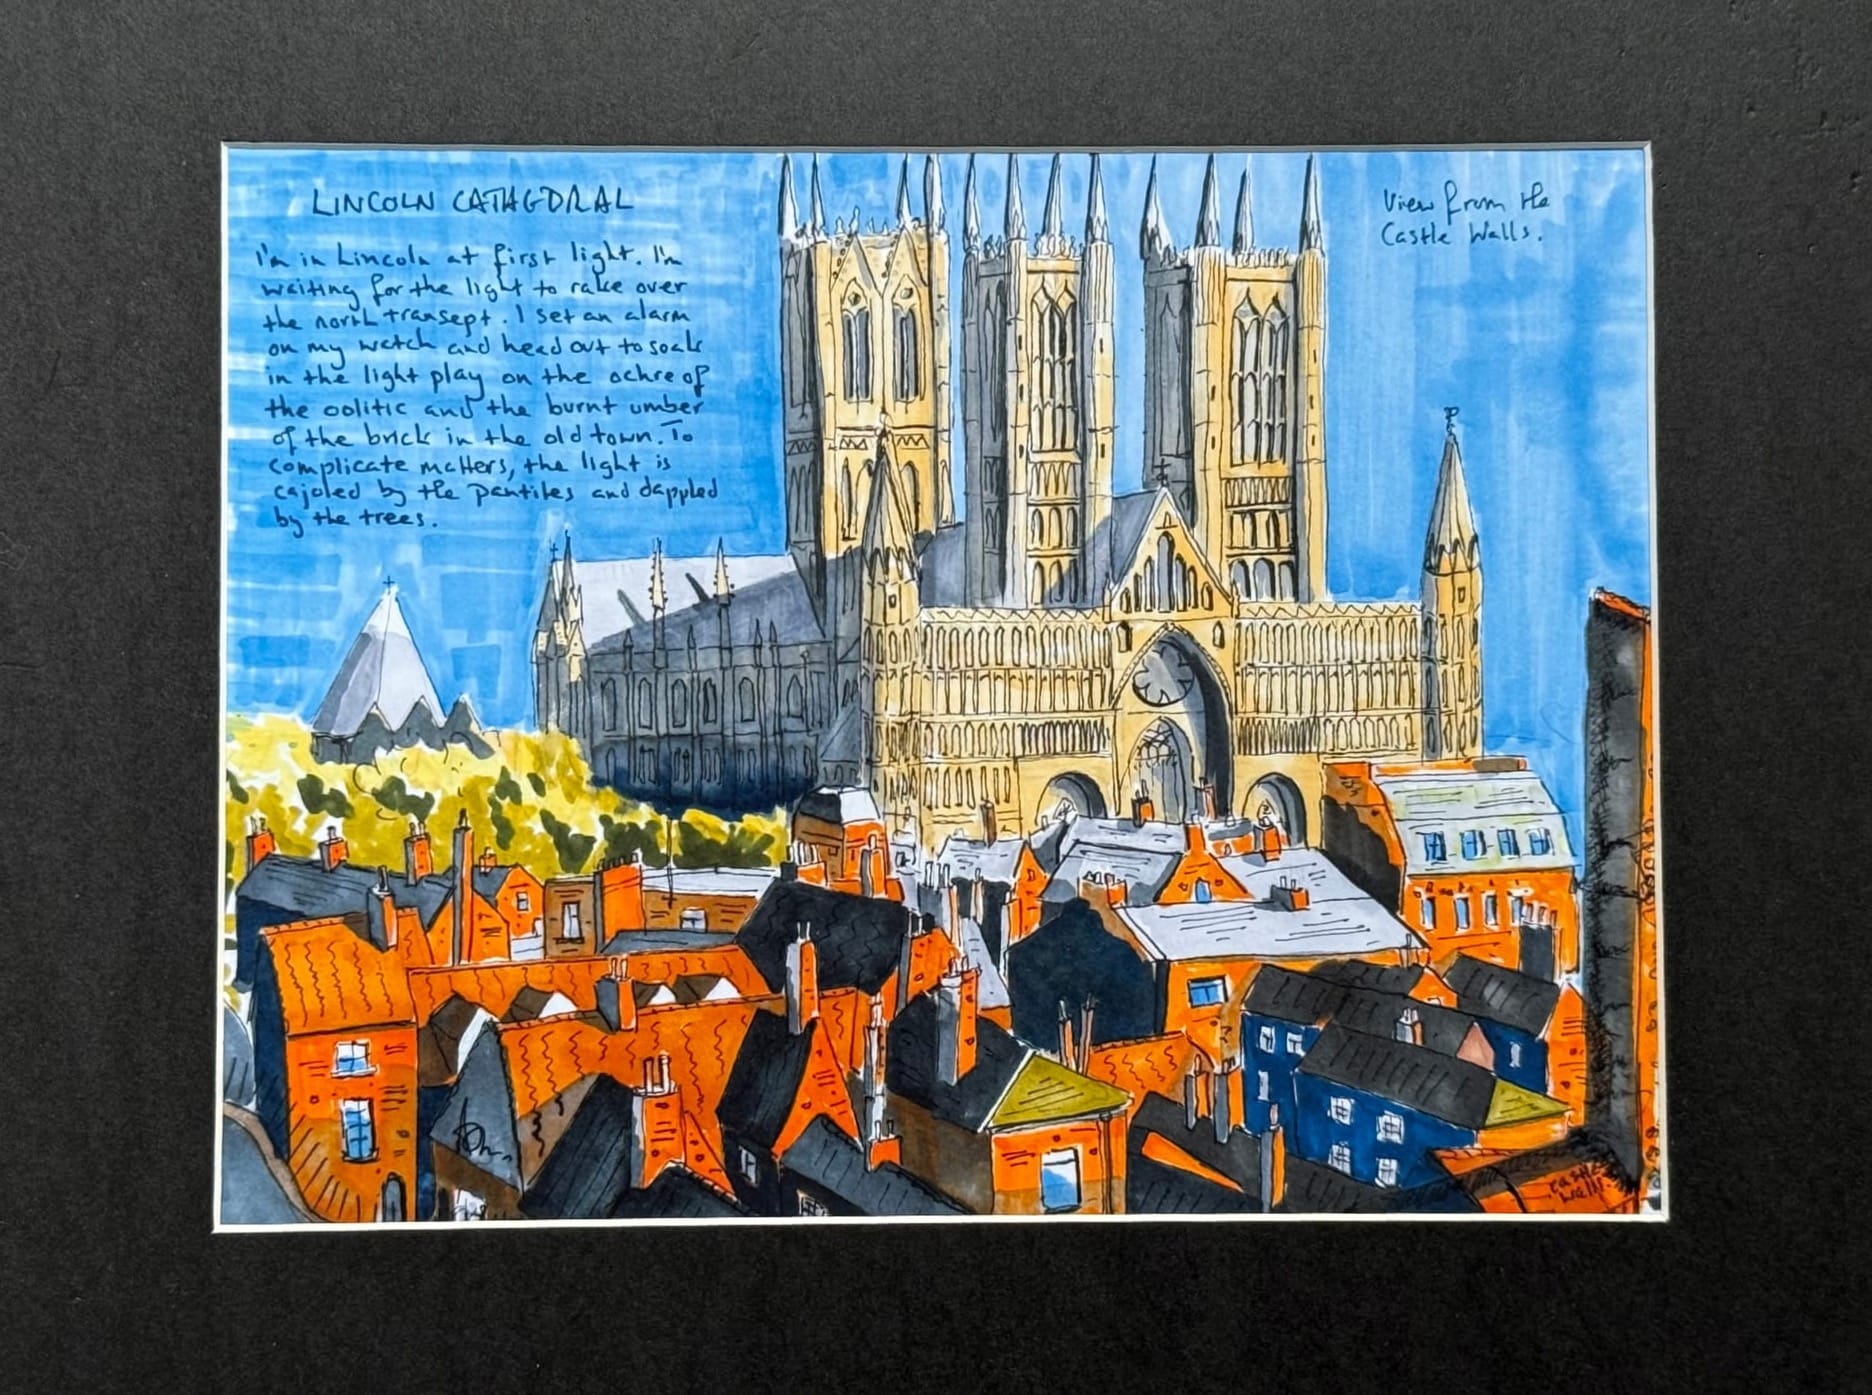 LINCOLN CATHEDRAL
I'm in Lincoln at first light. I'm
waiting for the light to rake over
the north transept. I set an alarm
on my watch and head out to soak
in the light play on the ochre of
the oolitic and the burnt umber
of the brick in the old town. To
complicate matters, the light is
cajoled by the pantiles and dappled
by the trees.
View from the
Castle Walls.
castle
walls.